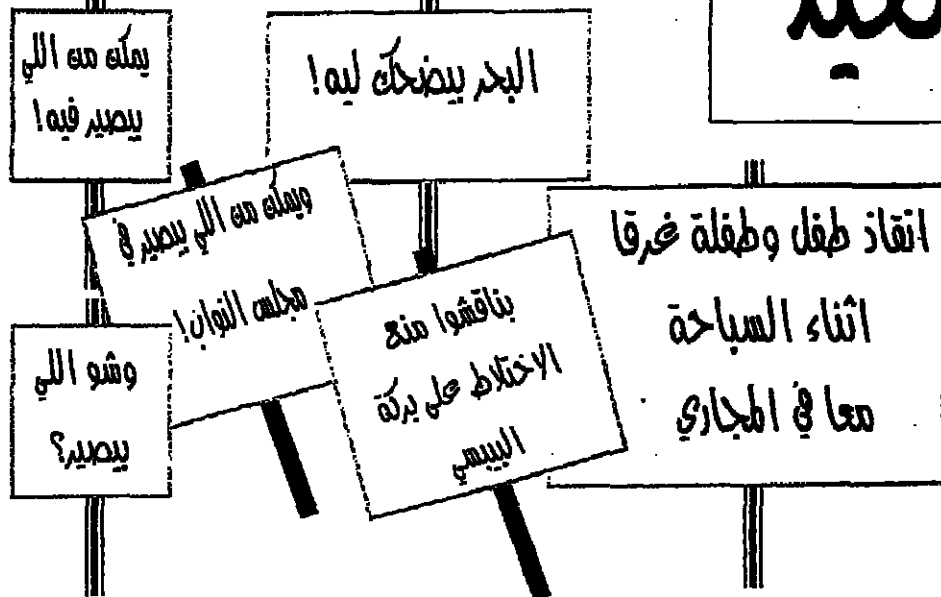 انقاذ طفل وطفلة غرقا
اثناء السباحة
معا في المجاري
البحر بيضحك ليه!
يمكن من اللي
بيصير فيه!
ويمكن من اللي بيصير في
مجلس النواب!
وشو اللي
بيصير؟
بناقشوا منع
الاختلاط على بركة
البيبسي